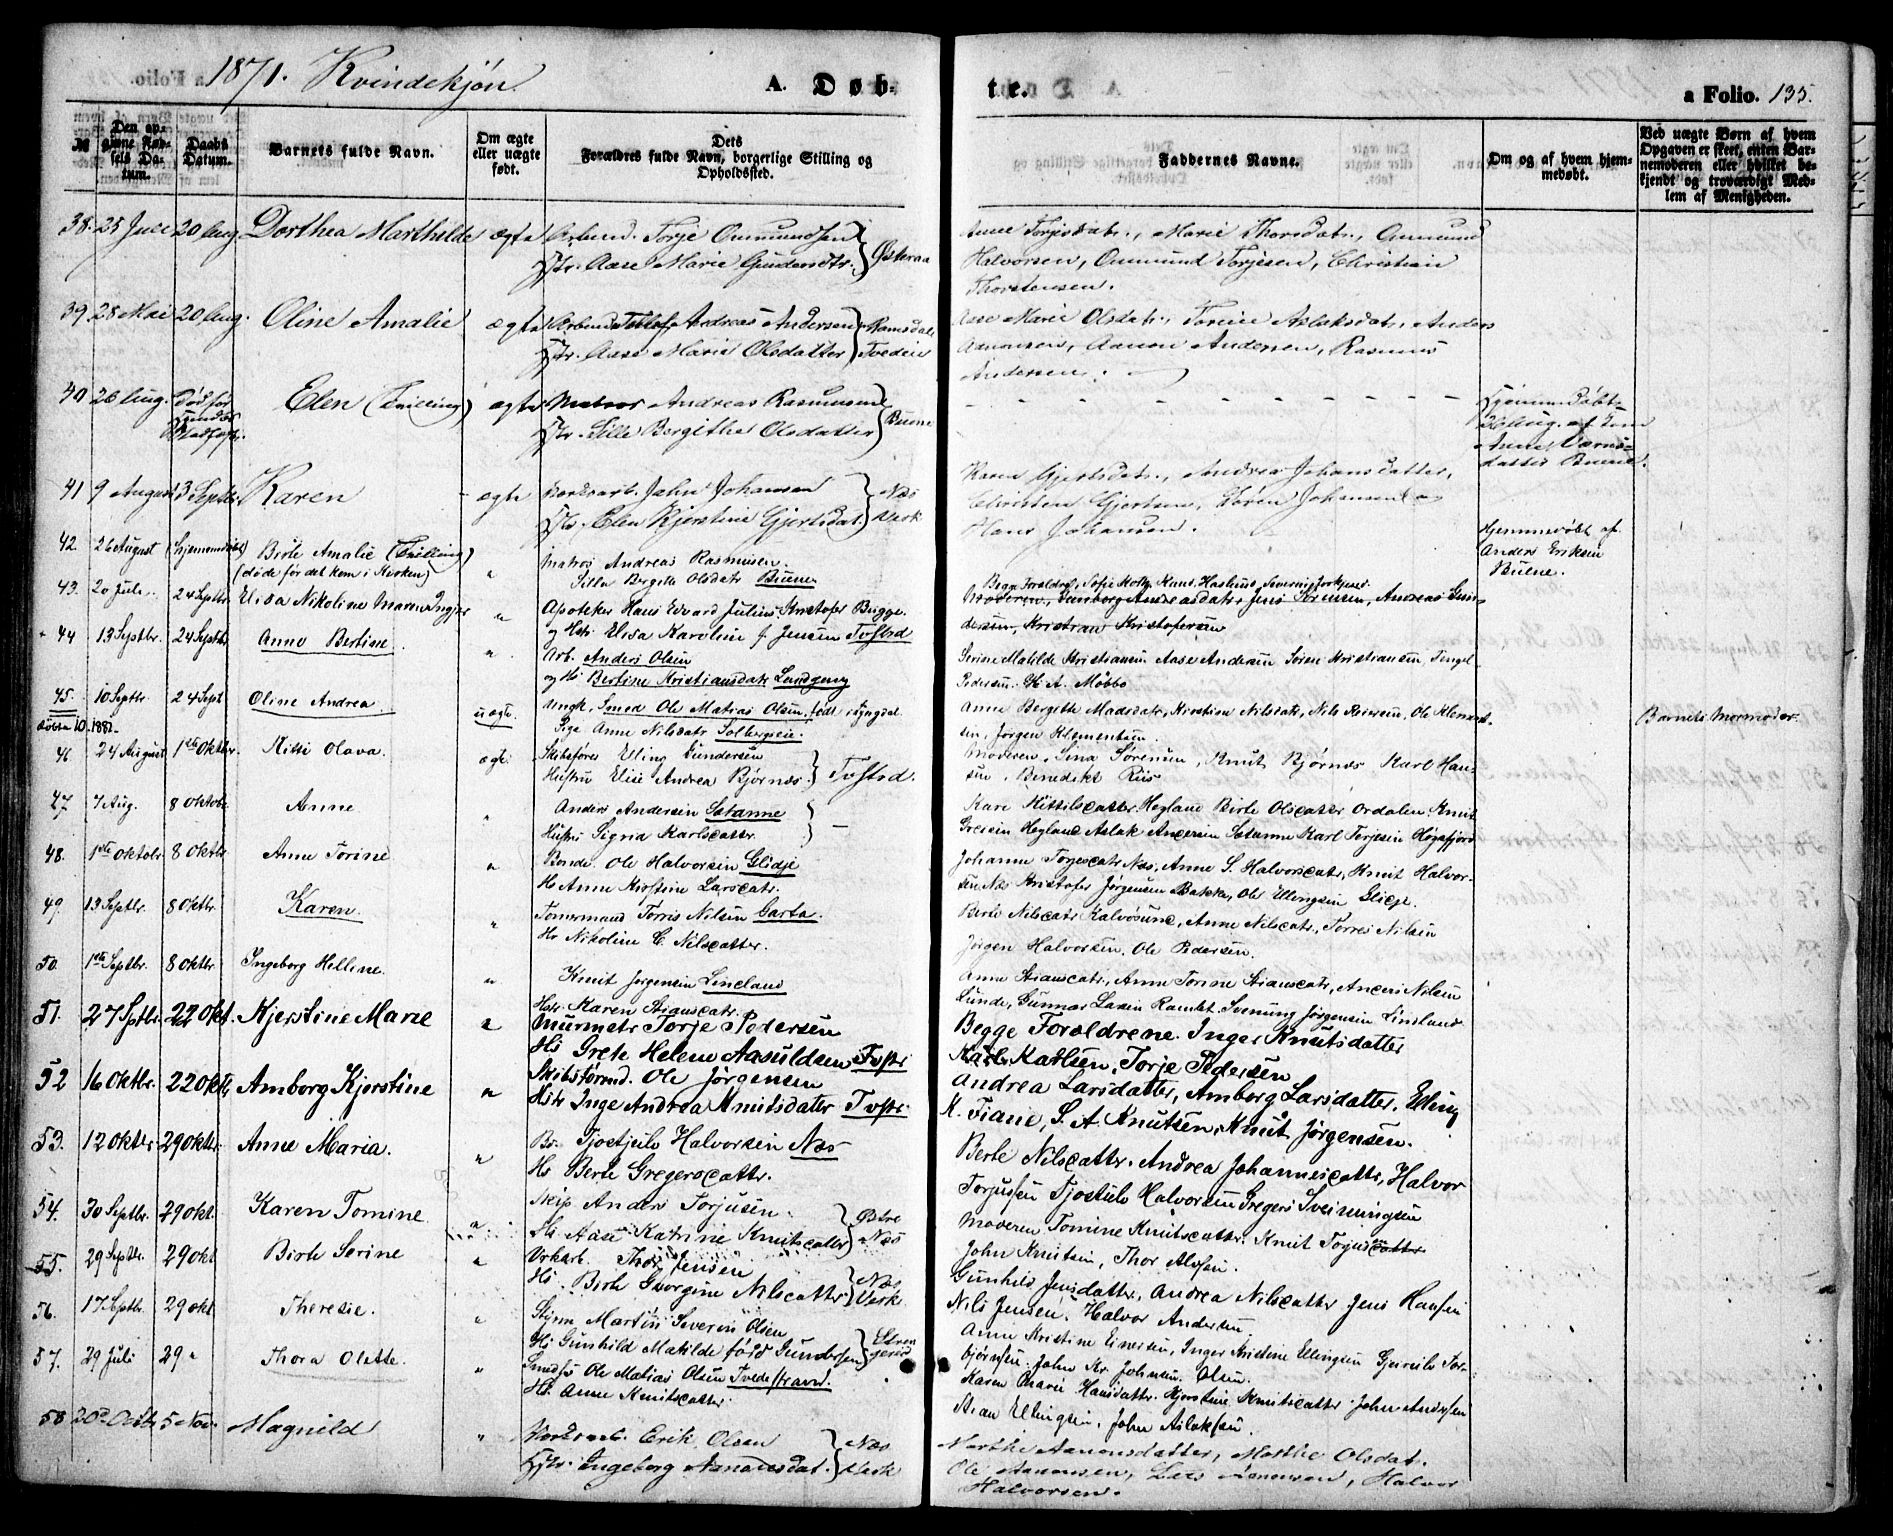 1871. Kvindekjøn.
A. Døb-
te.
a Folio. 135.
№
Den opgivne Fødsels Datum.
Daabs Datum.
Barnets fulde Navn.
Om ægte eller uægte født.
Dets Forældres fulde Navn, borgerlige Stilling og Opholdssted.
Faddernes Navne.
Om og af hvem hjemmedøbt.
Ved uægte Børn af hvem Opgaven er skeet, enten Barnemoderen eller hvilket bekjendt og troværdigt Medlem af Menigheden.
38. 25 Juli 20 Aug. Dorthea Marthilde ægte Arbmd. Torje Ommundsen
Hstr. Aase Marie Gundersdtr. Østeraa
Anne Torjesdatr., Marie Thorsdatr., Ommund
Halvorsen, Ommund Torjesen, Christian
Thorstensen.
39. 28 Mai 20 Aug. Oline Amalie ægte Arbmd. Tellef Andreas Andersen Ramsdal
Hstr. Aase Marie Olsdatter Tveden
Aase Marie Olsdatr., Torine Aslaksdatr., Anders
Aanonsen, Aanon Andersen, Rasmus
Andersen.
40. 26 Aug. Død før Elen (Tvilling) ægte Matros Andreas Rasmussen
Hstr. Sille Bergithe Olsdatter Buene
Hjemmedøbt
Aug. af Jom
Anne
datter Buene.
41 9 August 3 Septbr. Karen ægte Verksarb. Jahn Johansen Næs
Hstr. Elen Kjerstine Gjertsdat. Verk
Karen Gjertsdatr., Andrea Johansdatter,
Christen Gjertsen, Søren Johansen
Hans Johansen.
42. 26 August (hjemmedøbt) Birte Amalie (Tvilling)
(døde før det kom i Kirken) " Matros Andreas Rasmusen.
Silla Bergitte Olsdatr Buene
Hjemmedøbt af
Anders Eriksen
Buene.
43. 20 Juli. 24 Septbr Elisa Nikoline Maren Inger " Apotheker Hans Edvard Julius Kristofer Bugge.
og Hstr. Elisa Karoline f. Jensen Tvstrd
Begge Forældre, Sofie Holty, Hans
Moderen, Amborg Andreasdatr, Jens Sørensen, Andreas Gun-
dersen, Kristian Kristofersen
44 13 Septbr. 24 Septbr Anne Bertine. " Arb. Anders Olsen
og Hs Bertine Kristiansdatr. Landgang
Serine Matilde Kristiansen Aase Andersen Søren Kristiansen, Tengel
Pedersen. H. A. Møbbo
45. 10 Septbr. 24 Sept Oline Andrea. uægte. Ungk. Smed Ole Matias Olsen, født i Lyngdal
Pige Anne Nilsdatr Solbergseie.
Anne Bergith Madsdatr, Kirstine Nilsdatr, Nils Reiersen, Ole Klement-
sen, Jørgen Klementsen.
Barnets Mormoder.
46 24 August 1ste Oktbr. Kitti Olava. ægte. Skibsfører Elling Gundersen
Hustru Elise Andrea Bjørnæs Tvstrd.
Moderen, Lina Sørensen, Knut Bjørnæs Karl Han-
sen, Benedikt Riis
47 7 Aug. 8 Oktobr Anne " Anders Andersen Satanne
Hustru Sigrid Karlsdatter.
Kari Kittilsdatter Hegland Birte Olsdatter Ordalen. Knut
Greisen Hegland Aslak Andersen Satanne Karl Torjesen Høgefjord
48. 1ste Oktobr 8 Oktbr. Anne Torine " Bonde. Ole Halvorsen Glidje
Hs Anne Kirstine Larsdatr.
Johanne Torjesdatr Næs, Anne S. Halvorsdatr, Knut Halvor-
sen Næs Kristofer Jørgensen Bakke, Ole Ellingsen Glidje.
49. 13 Septbr. 8 Oktbr. Karen. " Tømermand Torris Nilsen Garta.
Hs Nikoline C. Nilsdatter.
Berte Nilsdatr Kalvøsund, Anne Nilsdatr, Torres Nilsen
Jørgen Halvorsen, Ole Pedersen.
50. 1ste Septbr. 8 Oktbr Ingeborg Helline. " Knut Jørgensen Lindland
Hstr. Karen Stiansdatr.
Anne Stiansdatr, Anne Tomine Stiansdatr, Anders Nilsen
Lunde, Gunnar Lassen Ramlet Svenung Jørgensen Lindland.
51. 27 Sptbr. 22 Okt. Kjerstine Marie " Murmstr Torje Pedersen
Hs Grete Helene Aasuldsen Tvstr
Begge Forældrene. Inger Knutsdatter
Karl Karlsen, Torje Pedersen
52 16 Oktbr. 22 Oktbr Amborg Kjerstine " Skibsførmd. Ole Jørgensen
Hstr Inge Andrea Knutsdatter Tvstr.
Andrea Larsdatter, Amborg Larsdatter, Elling
K. Fiane, S. A. Knutsen, Knut Jørgensen.
53. 12 Oktbr. 29 Oktbr. Anne Maria. " Br. Tjostjulv Halvorsen Næs
Hs Berte Gregersdatter.
Berte Nilsdatter. Andrea Johannesdatter, Halvor
Torjusen Tjostulv Halvorsen Gregers Sveinungsen
54. 30 Septbr. 29 Okt. Karen Tomine " Skip Anders Torjusen. Østre
Hs Aase Katrine Knutsdatter Næs
Moderen Tomine Knutsdatter. Knut Torjusdatter
John Knutsen, Thor Alvsen.
55. 29 Septbr. 29 Okt Birte Serine " Vrkarb. Thor Jensen
Hs. Birte Georgine Nilsdatter Næs Verk
Gunhild Jensdatter, Andrea Nilsdatter Jens Hansen
Nils Jensen, Halvor Andersen
56. 17 Septbr. 29 Okt Theresie. " Styrm Martin Severin Olsen
Hs Gunhild Matilde født Gundersen
Anne Kristine Einersen, Inger Kristine Ellingsen
bjørnsen. John Kr. Johnsen. Olsen.
57. 29 Juli 29 " Thora Olette. " Smed Ole Matias Olsen Tvedestrand.
Hs. Anne Knutsdatter.
Karen Marie Hansdatter. Kjerstine Knutsdatter. John Andersen
Stian Ellingsen, John Aslaksen.
58 20de Octbr 5 Nov. Magnild " Verksarb. Erik Olsen Næs
Hstr. Ingeborg Aanonsdat. Verk
Marthe Aanonsdatter, Marthe Olsdat.
Ole Aanonsen, Lars Aanonsen, Halvor
Halvorsen.